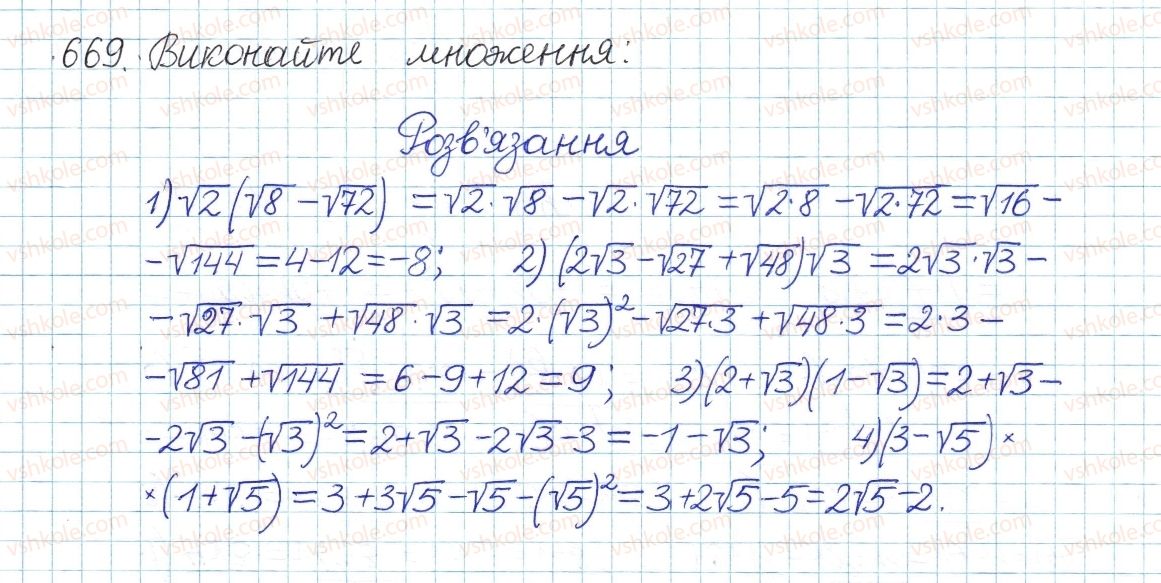 669. Виконайте множення:
Розв'язання
1) √2(√8 − √72) = √2·√8 − √2·√72 = √2·8 − √2·72 = √16 −
− √144 = 4−12 = −8; 2) (2√3 − √27 + √48)√3 = 2√3·√3 −
− √27·√3 + √48·√3 = 2·(√3)² − √27·3 + √48·3 = 2·3 −
− √81 + √144 = 6 − 9 + 12 = 9; 3) (2+√3)(1−√3) = 2 + √3 −
− 2√3 − (√3)² = 2 + √3 − 2√3 − 3 = −1 − √3; 4) (3−√5) ×
× (1+√5) = 3 + 3√5 − √5 − (√5)² = 3 + 2√5 − 5 = 2√5 − 2.